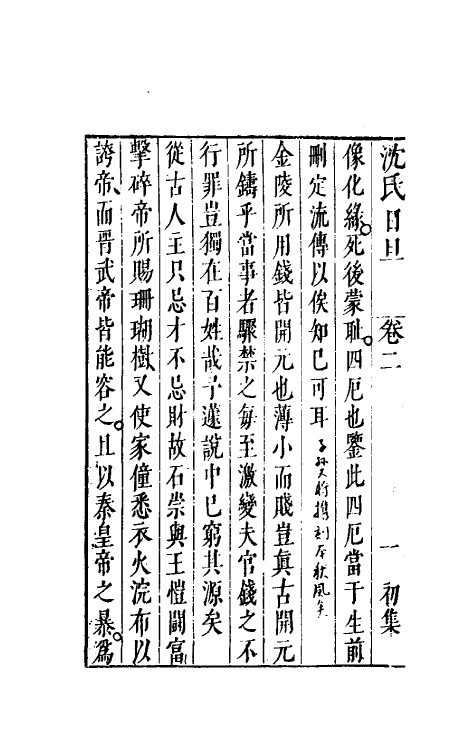 沈氏日旦 卷二 一 初集
像化緣死後蒙耻四厄也鑒此四厄當于生前
刪定流傳以俟知已可耳
金陵所用錢皆開元也薄小而賤豈眞古開元
所鑄乎當事者驟禁之每至激變夫官錢之不
行罪豈獨在百姓哉予蘧說中已窮其源矣
從古人主只忌才不忌財故石崇與王愷鬪富
擊碎帝所賜珊瑚樹又使家僮悉衣火浣布以
誇帝而晋武帝皆能容之且以秦皇帝之暴爲